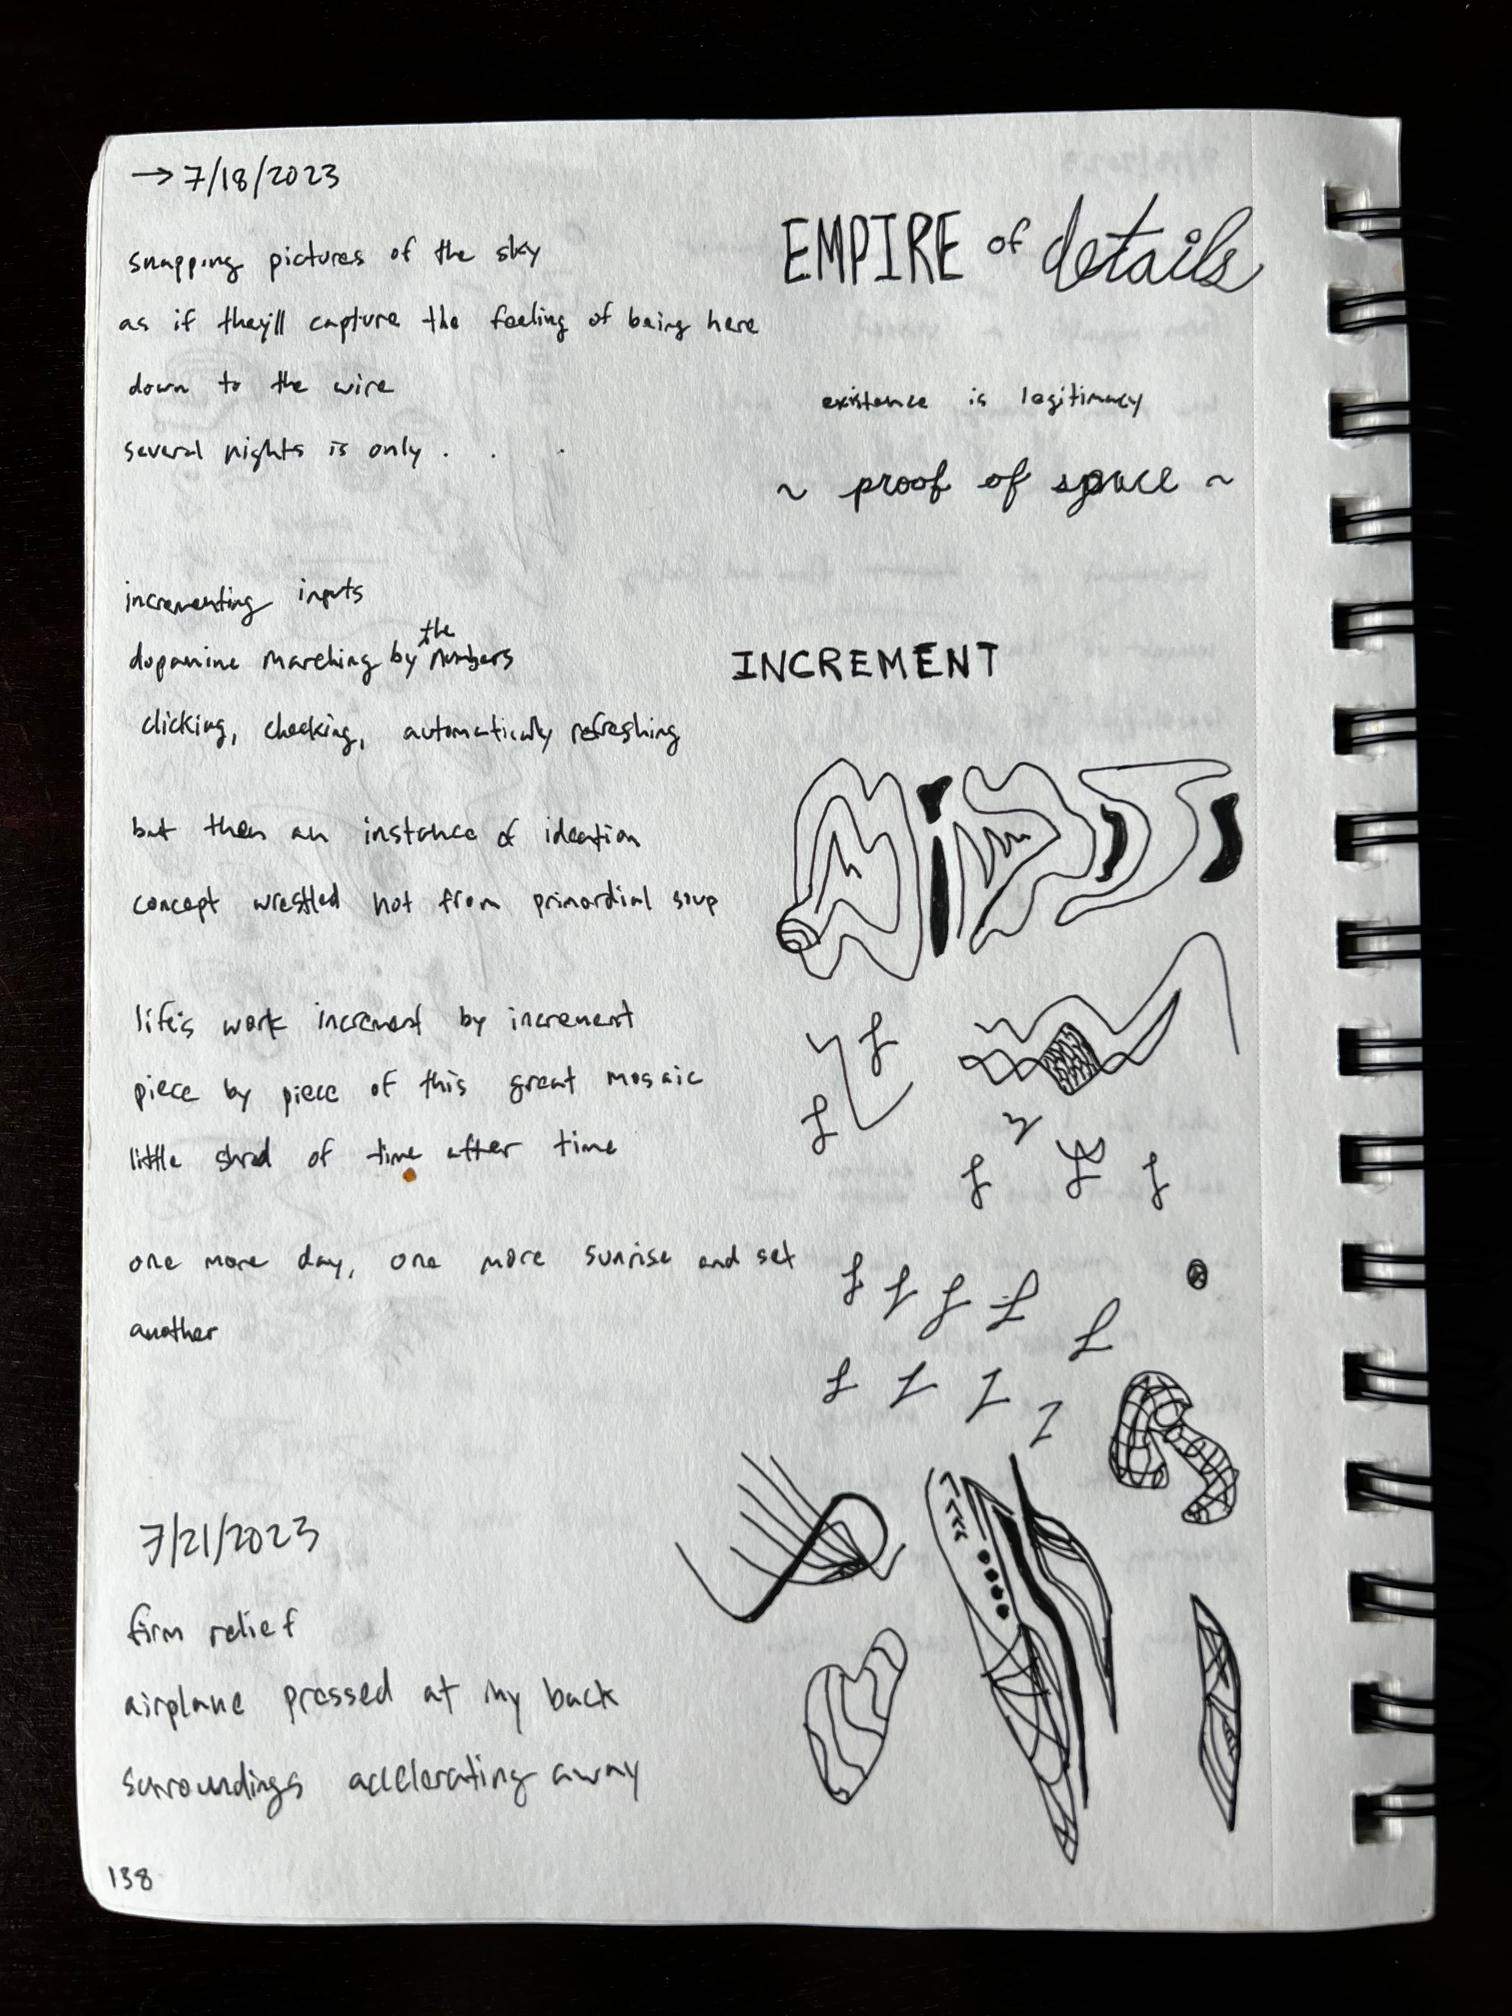 → 7/18/2023
snapping pictures of the sky
as if they'll capture the feeling of being here
down to the wire
several nights is only . . .
incrementing inputs
dopamine marching by the numbers
clicking, checking, automatically refreshing
but then an instance of ideation
concept wrestled not from primordial soup
life's work increment by increment
piece by piece of this great mosaic
little shred of time after time
one more day, one more sunrise and set
another
7/21/2023
firm relief
airplane pressed at my back
surroundings accelerating away
138
EMPIRE of details
existence is legitimacy
~ proof of space ~
INCREMENT